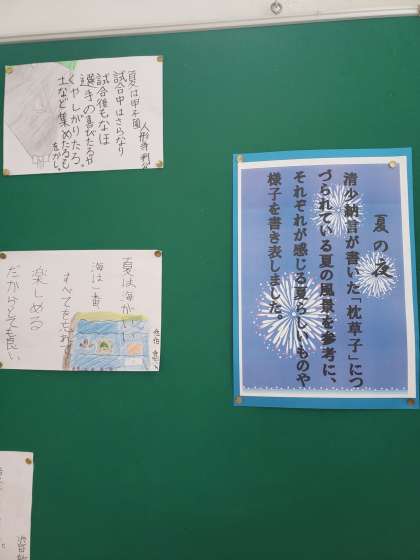 夏の夜
清少納言が書いた「枕草子」につ
づられている夏の風景を参考に、
それぞれが感じる夏らしいものや
様子を書き表しました。
夏は甲子園
試合中はさらなり
試合後もなほ
選手の喜びたるや
くやしがりたる。
土など集めたるも
をかし。
夏は海がいい
海は一番
すべてを忘れ
楽しめる
だからとても良い